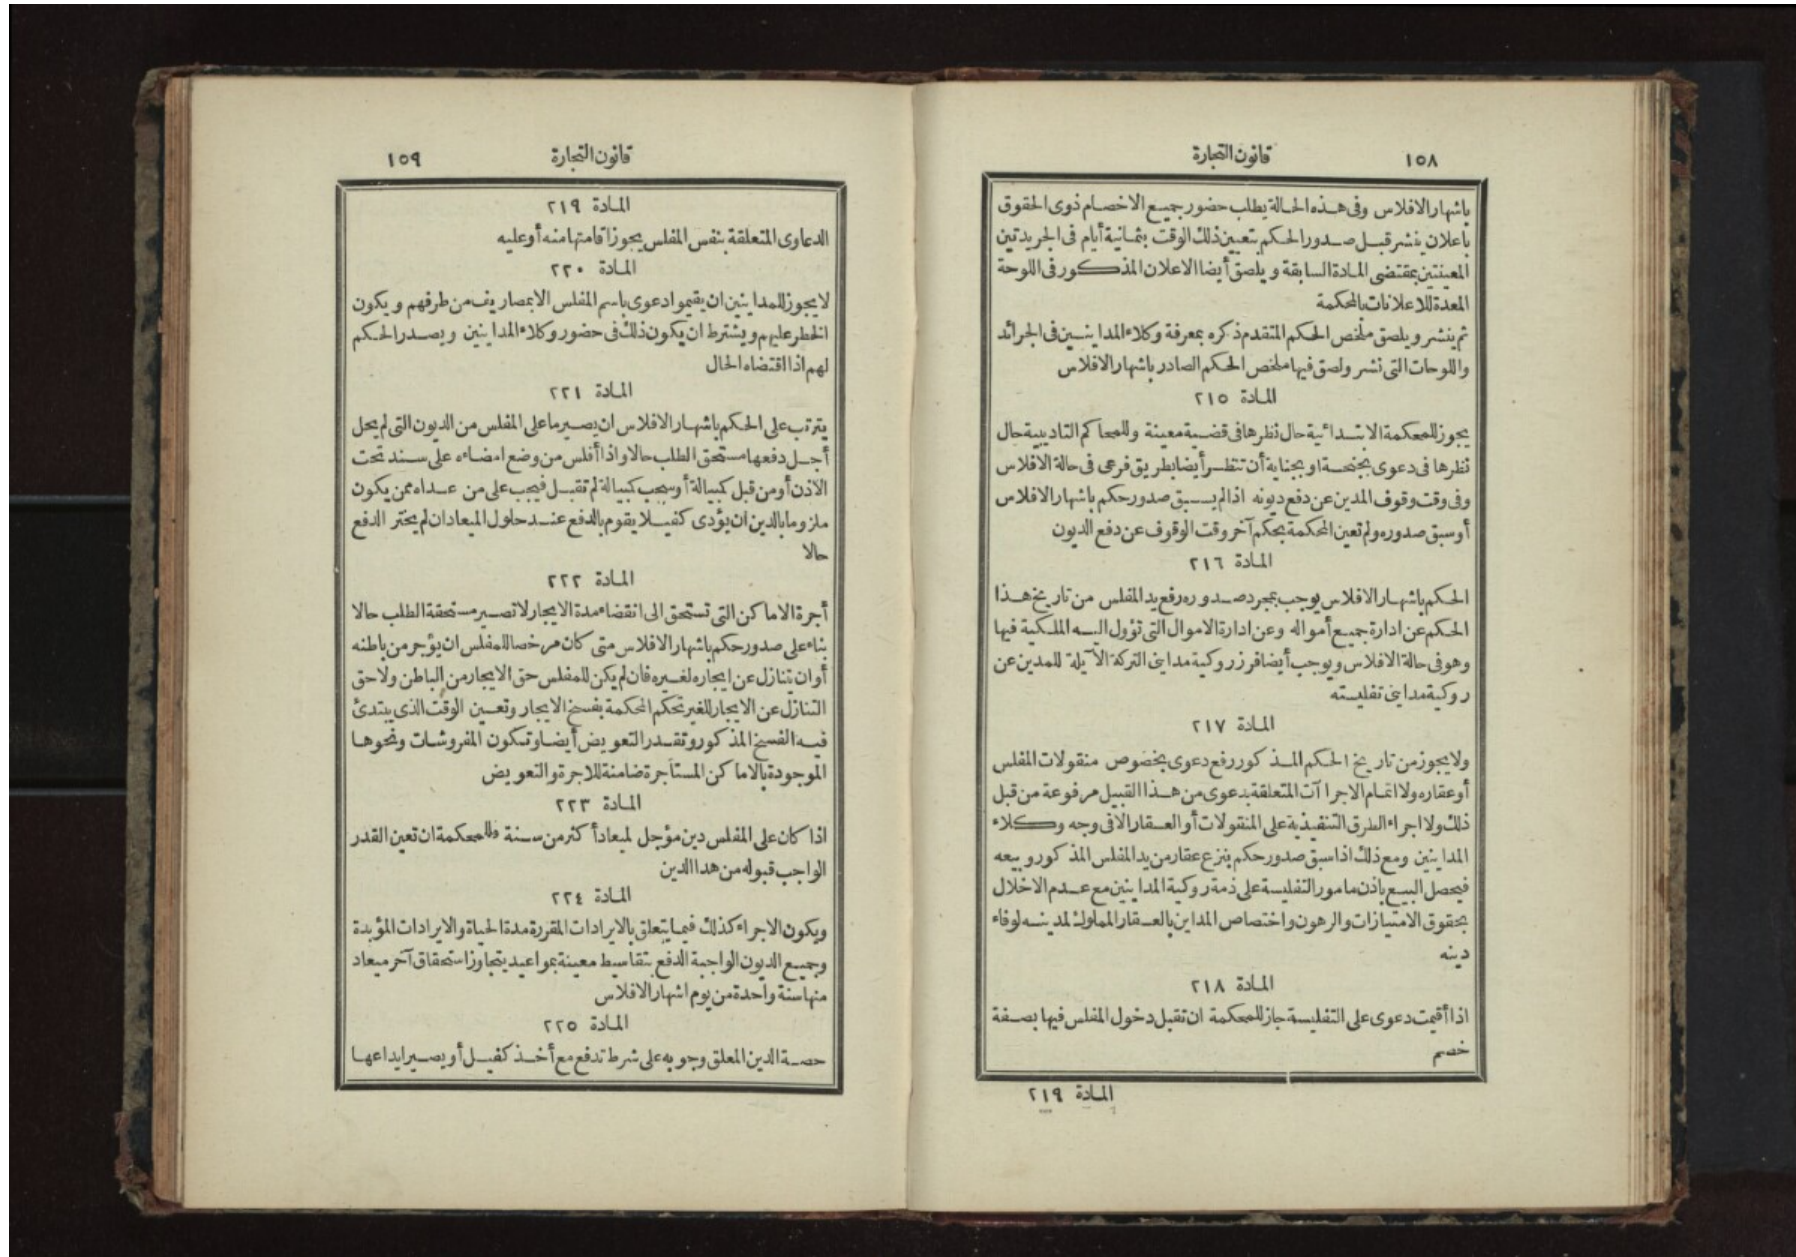 ١٥٨
قانون التجارة
باشهار الافلاس وفى هذه الحالة يطلب حضور جميع الاخصام ذوى الحقوق
باعلان ينشر قبل صدور الحكم بتعيين ذلك الوقت بثمانية أيام فى الجريدتين
المعينتين بمقتضى المادة السابقة ويلصق أيضا الاعلان المذكور فى اللوحة
المعدة للاعلانات بالمحكمة
ثم ينشر ويلصق ملخص الحكم المتقدم ذكره بمعرفة وكلاء المداينين فى الجرائد
واللوحات التى نشر ولصق فيها ملخص الحكم الصادر باشهار الافلاس
المادة ٢١٥
يجوز للمحكمة الابتدائية حال نظرها فى قضية معينة وللمحاكم التاديبية حال
نظرها فى دعوى بجنحة او بجناية أن تنظر أيضا بطريق فرعى فى حالة الافلاس
وفى وقت وقوف المدين عن دفع ديونه اذا لم يسبق صدور حكم باشهار الافلاس
أو سبق صدوره ولم تعين المحكمة بحكم آخر وقت الوقوف عن دفع الديون
المادة ٢١٦
الحكم باشهار الافلاس يوجب بمجرد صدوره رفع يد المفلس من تاريخ هذا
الحكم عن ادارة جميع أمواله وعن ادارة الاموال التى تؤول اليه الملكية فيها
وهو فى حالة الافلاس ويوجب أيضا فرز روكية مداينى التركة الآيلة للمدين عن
روكية مداينى تفليسته
المادة ٢١٧
ولا يجوز من تاريخ الحكم المذكور رفع دعوى بخصوص منقولات المفلس
أو عقاره ولا اتمام الاجرا آت المتعلقة بدعوى من هذا القبيل مرفوعة من قبل
ذلك ولا اجراء الطرق التنفيذية على المنقولات أو العقار الا فى وجه وكلاء
المداينين ومع ذلك اذا سبق صدور حكم بنزع عقار من يد المفلس المذكور وبيعه
فيحصل البيع باذن مامور التفليسة على ذمة روكية المداينين مع عدم الاخلال
بحقوق الامتيازات والرهون واختصاص المداين بالعقار المملوك لمدينه لوفاء
دينه
المادة ٢١٨
اذا أقيمت دعوى على التفليسة جاز للمحكمة ان تقبل دخول المفلس فيها بصفة
خصم
المادة ٢١٩
قانون التجارة
١٥٩
المادة ٢١٩
الدعاوى المتعلقة بنفس المفلس يجوز اقامتها منه أو عليه
المادة ٢٢٠
لا يجوز للمداينين ان يقيموا دعوى باسم المفلس الا بمصاريف من طرفهم ويكون
الخطر عليهم ويشترط ان يكون ذلك فى حضور وكلاء المداينين ويصدر الحكم
لهم اذا اقتضاه الحال
المادة ٢٢١
يترتب على الحكم باشهار الافلاس ان يصير ما على المفلس من الديون التى لم يحل
أجل دفعها مستحق الطلب حالا واذا أفلس من وضع امضاءه على سند تحت
الاذن أو من قبل كمبيالة أو سحب كمبيالة لم تقبل فيجب على من عداه ممن يكون
ملزوما بالدين ان يؤدى كفيلا يقوم بالدفع عند حلول الميعاد ان لم يختر الدفع
حالا
المادة ٢٢٢
أجرة الاماكن التى تستحق الى انقضاء مدة الايجار لا تصير مستحقة الطلب حالا
بناء على صدور حكم باشهار الافلاس متى كان مرخصا للمفلس ان يؤجر من باطنه
أو ان يتنازل عن ايجاره لغيره فان لم يكن للمفلس حق الايجار من الباطن ولا حق
التنازل عن الايجار للغير تحكم المحكمة بفسخ الايجار وتعين الوقت الذى يبتدئ
فيه الفسخ المذكور وتقدر التعويض أيضا وتكون المفروشات ونحوها
الموجودة بالاماكن المستأجرة ضامنة للاجرة والتعويض
المادة ٢٢٣
اذا كان على المفلس دين مؤجل لميعاد أكثر من سنة فللمحكمة ان تعين القدر
الواجب قبوله من هدا الدين
المادة ٢٢٤
ويكون الاجراء كذلك فيما يتعلق بالايرادات المقررة مدة الحياة والايرادات المؤبدة
وجميع الديون الواجبة الدفع بتقاسيط معينة بمواعيد يتجاوز استحقاق آخر ميعاد
منها سنة واحدة من يوم اشهار الافلاس
المادة ٢٢٥
حصة الدين المعلق وجوبه على شرط تدفع مع أخذ كفيل أو يصير ايداعها